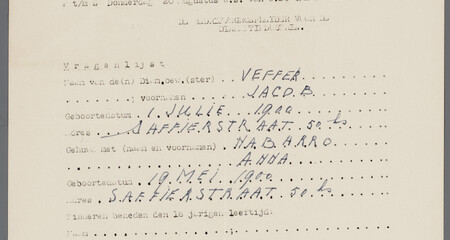 t/m Z Donderdag 20 Augustus a.s. van
DE
Vragenlijst
Naam van de(n) Diam.bew.(ster) VEFFER
voornamen JACOB
Geboortedatum 1 JULLIE 1900
Adres SAFFIERSTRAAT 50 hs
Gehuwd met (naam en voornamen) NABARRO
ANNA
Geboortedatum 19 MEI 1900
Adres SAFFIERSTRAAT 50 hs
Kinderen beneden den 16 jarigen leeftijd:
Naam